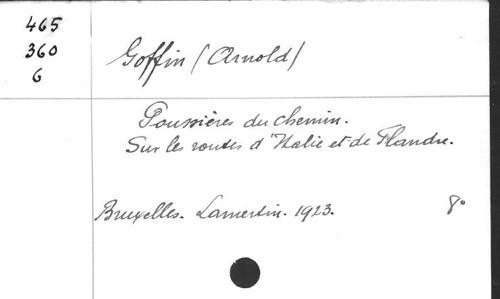 465
360
G
Goffin (Arnold)
Poussières du chemin.
Sur les routes d'Italie et de Flandre.
Bruxelles. Lamertin. 1923. 8°